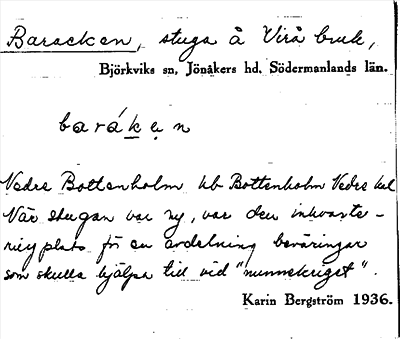 Baracken, stuga å Virå bruk,
Björkviks sn, Jönåkers hd, Södermanlands län.
baráken
Vedre Bottenholm hb Bottenholm Vedre kbl
När stugan var ny, var den inkvarte-
ringplats för en avdelning beväringar
som skulle hjälpa till vid "nunnekriget".
Karin Bergström 1936.